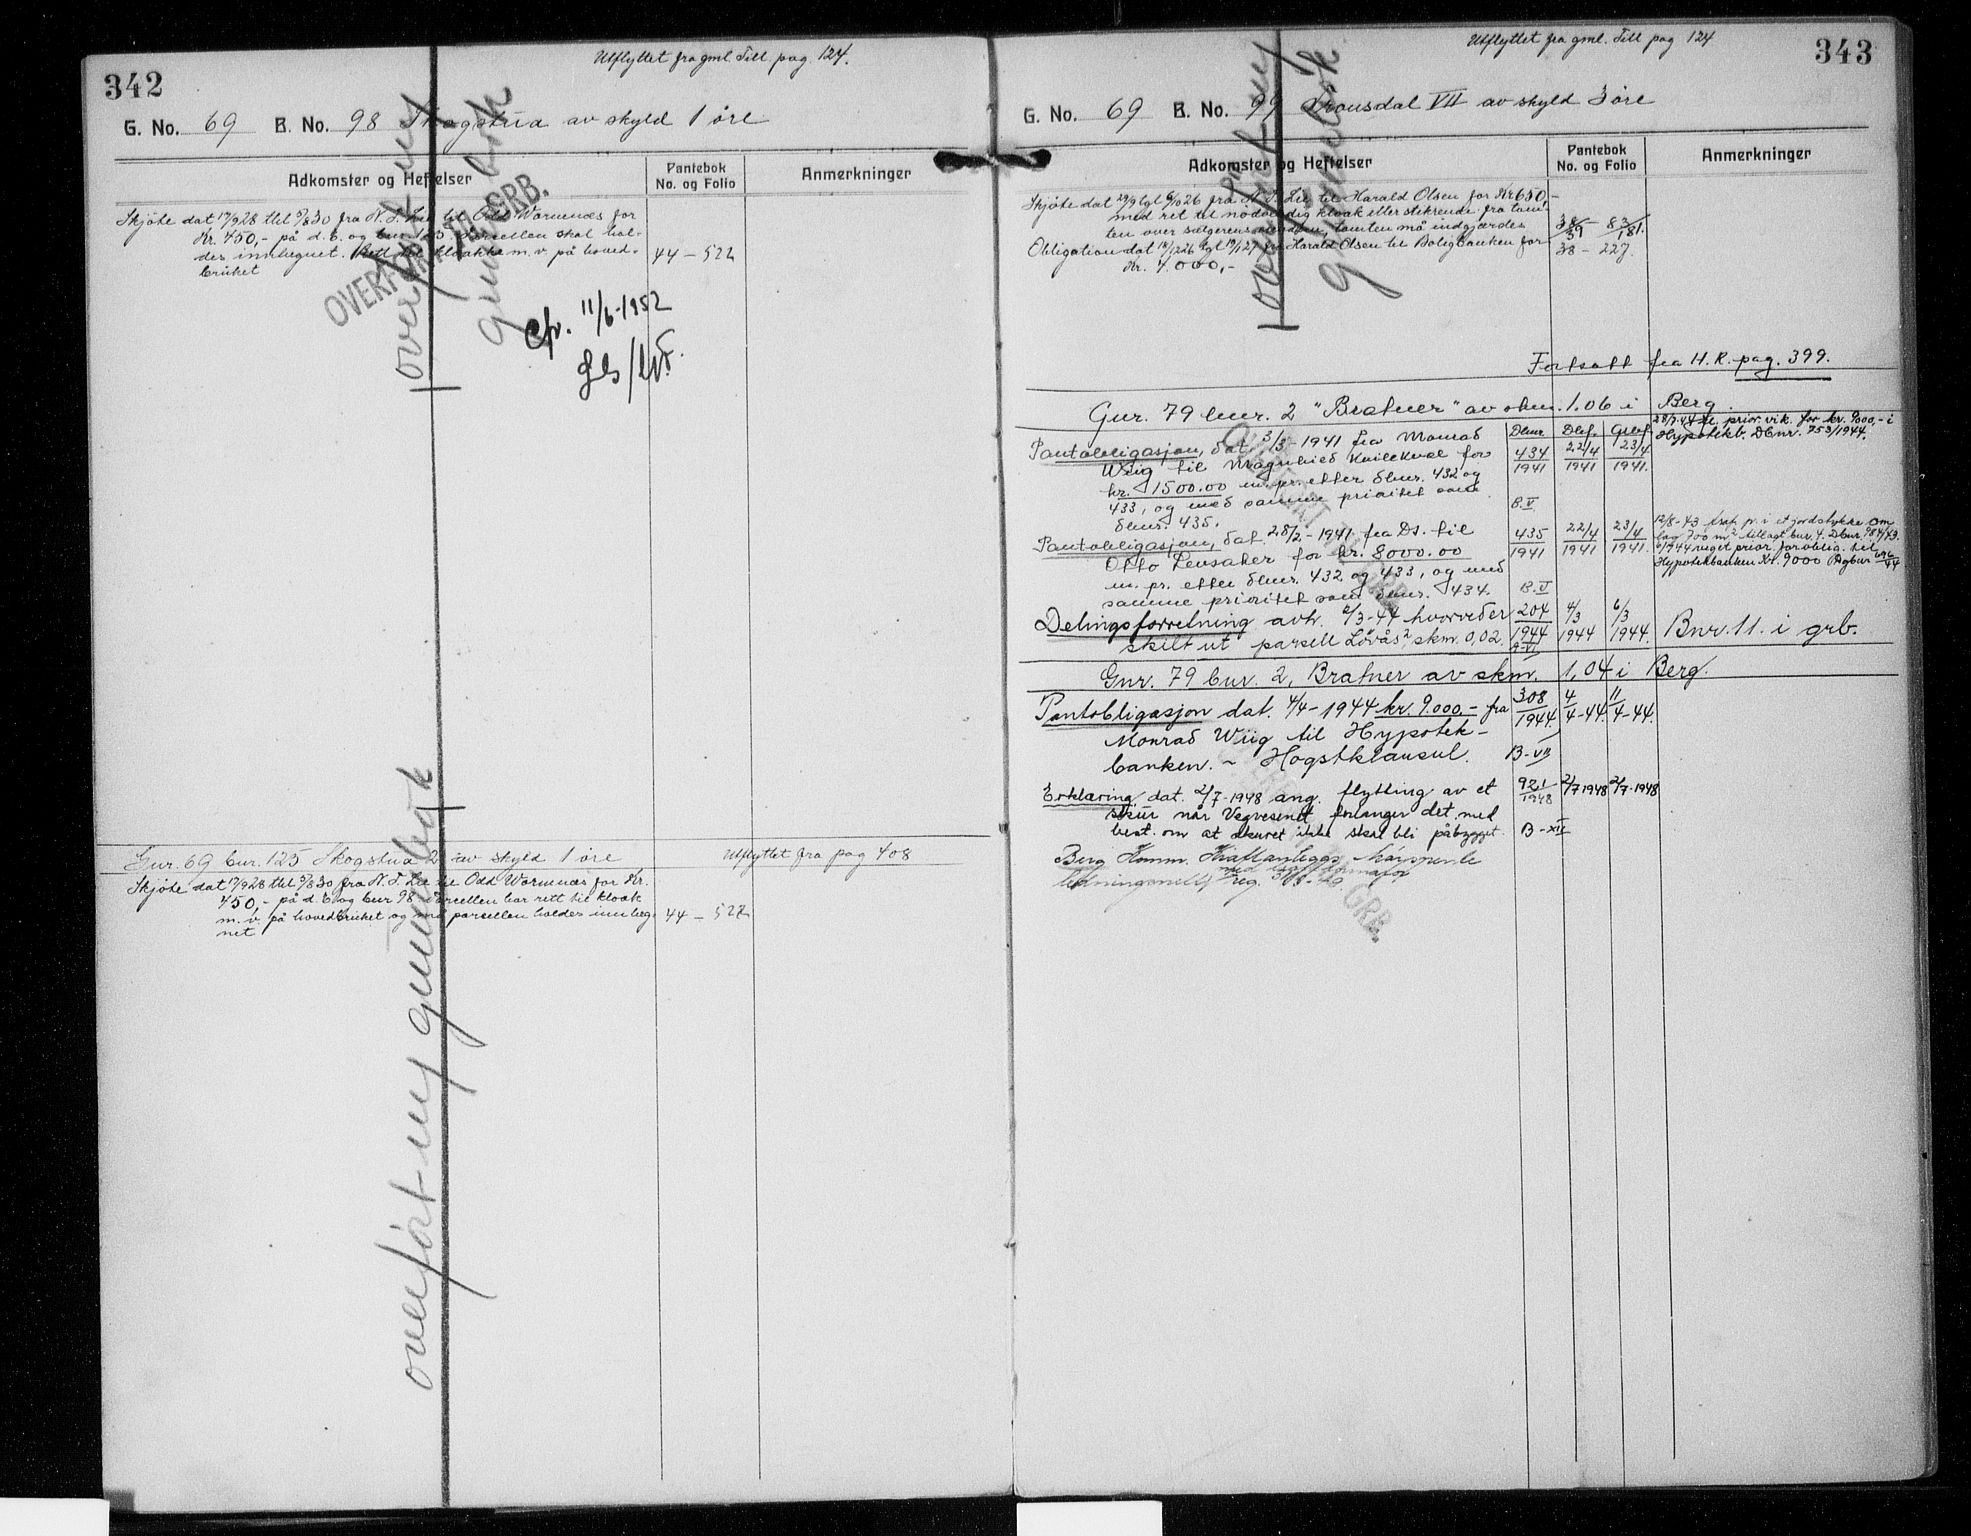 342
Utflyttet fra gml. Till pag 124.
G. No. 69 B. No. 98 Skogstua av skyld 1 øre
Adkomster og Heftelser
Pantebok
No. og Folio
Anmerkninger
Skjøte dat 17/9 28 tlst 5/8 30 fra N. T. Lie til Odd Warmnæs for
Kr. 450,- på d. E. og bnr. 125 Parcellen skal hol-
des innhegnet. Rett til kloakk m. v. på hoved-
bruket
44 – 522
OVERFØRT TIL GRB.
overført ny
grunnbok
11/6-1952
Gnr. 69 bnr. 125 Skogstua 2 av skyld 1 øre
Utflyttet fra pag 408
Skjøte dat 17/9 28 tlst 5/8 30 fra N. T. Lie til Odd Warmnæs for Kr.
450,- på d. E og bnr 98 Parcellen har rett til kloak
m. v. på hovedbruket og må parsellen holdes innheg-
net
44 – 522
overført ny grunnbok
343
Utflyttet fra gml. Till pag 124
G. No. 69 B. No. 99 Tronsdal VII av skyld 3 øre
Adkomster og Heftelser
Pantebok
No. og Folio
Anmerkninger
Skjøte dat 29/9 tgl 6/10 26 fra N. T. Lie til Harald Olsen for Kr 650,-
med ret til nødvendig kloak eller stikrende fra tom-
ten over sælgerens eiendom, tomten må indgjærdes
38 – 83/181
39
Obligation dat 18/12 26 tgl 19/1 27 fra Harald Olsen til Boligbanken for
Kr. 4.000,-
38 – 227.
overført ny
grunnbok
Fortsatt fra H. R. pag. 399.
Gnr. 79 bnr. 2 "Bratner" av skm. 1.06 i Berg.
Dbnr. Dat. Grbf.
28/7-44 prior. vik. for kr. 9000,- i
Hypotekb. Dbnr. 753/1944.
Pantobligasjon, dat. 3/3-1941 fra Monrad
Wiig til Magnhild Kvilekval for
kr. 1500.00 m. pr. etter dbnr. 432 og
433, og med samme prioritet som
dbnr. 435.
434/1941 22/4 1941 23/4 1941.
B. V
Pantobligasjon, dat. 28/2-1941 fra Ds. til
Otto Lensaker for kr. 8000.00
m. pr. etter dbnr. 432 og 433, og med
samme prioritet som dbnr. 434.
435/1941 22/4 1941 23/4 1941.
B. V
12/8-43 fraf. p. i et jordstykke om
lag 700 m² tillagt bnr. 4. Dbnr. 984/43.
6/1944 veget prior. for oblig. til
Hypotekbanken Kr. 9000 Dagbnr 696/44
OVERFØRT TIL GRB.
Delingsforretning avh. 2/3-44 hvorveder
skilt ut parsell Løvås 2, skm. 0,02.
204/1944 4/3 1944 6/3 1944.
A-VI
Bnr. 11. i grb.
Gnr. 79 bnr. 2, Bratner av skm. 1,04 i Berg.
Pantobligasjon dat. 4/4-1944 kr. 9.000.- fra
Monrad Wiig til Hypotek-
banken. – Hogstklausul.
308/1944. 4/4-44. 11/4-44.
B-VII
Erklæring dat. 2/7-1948 ang. flytting av et
skur når Vegvesenet forlanger det, med
best. om at skuret ikke skal bli påbygget.
921/1948 2/7 1948 2/7-1948
B-XII
Berg Komm. Kraftanleggs høyspente
ledningsnett med transformator
reg.
GRB.